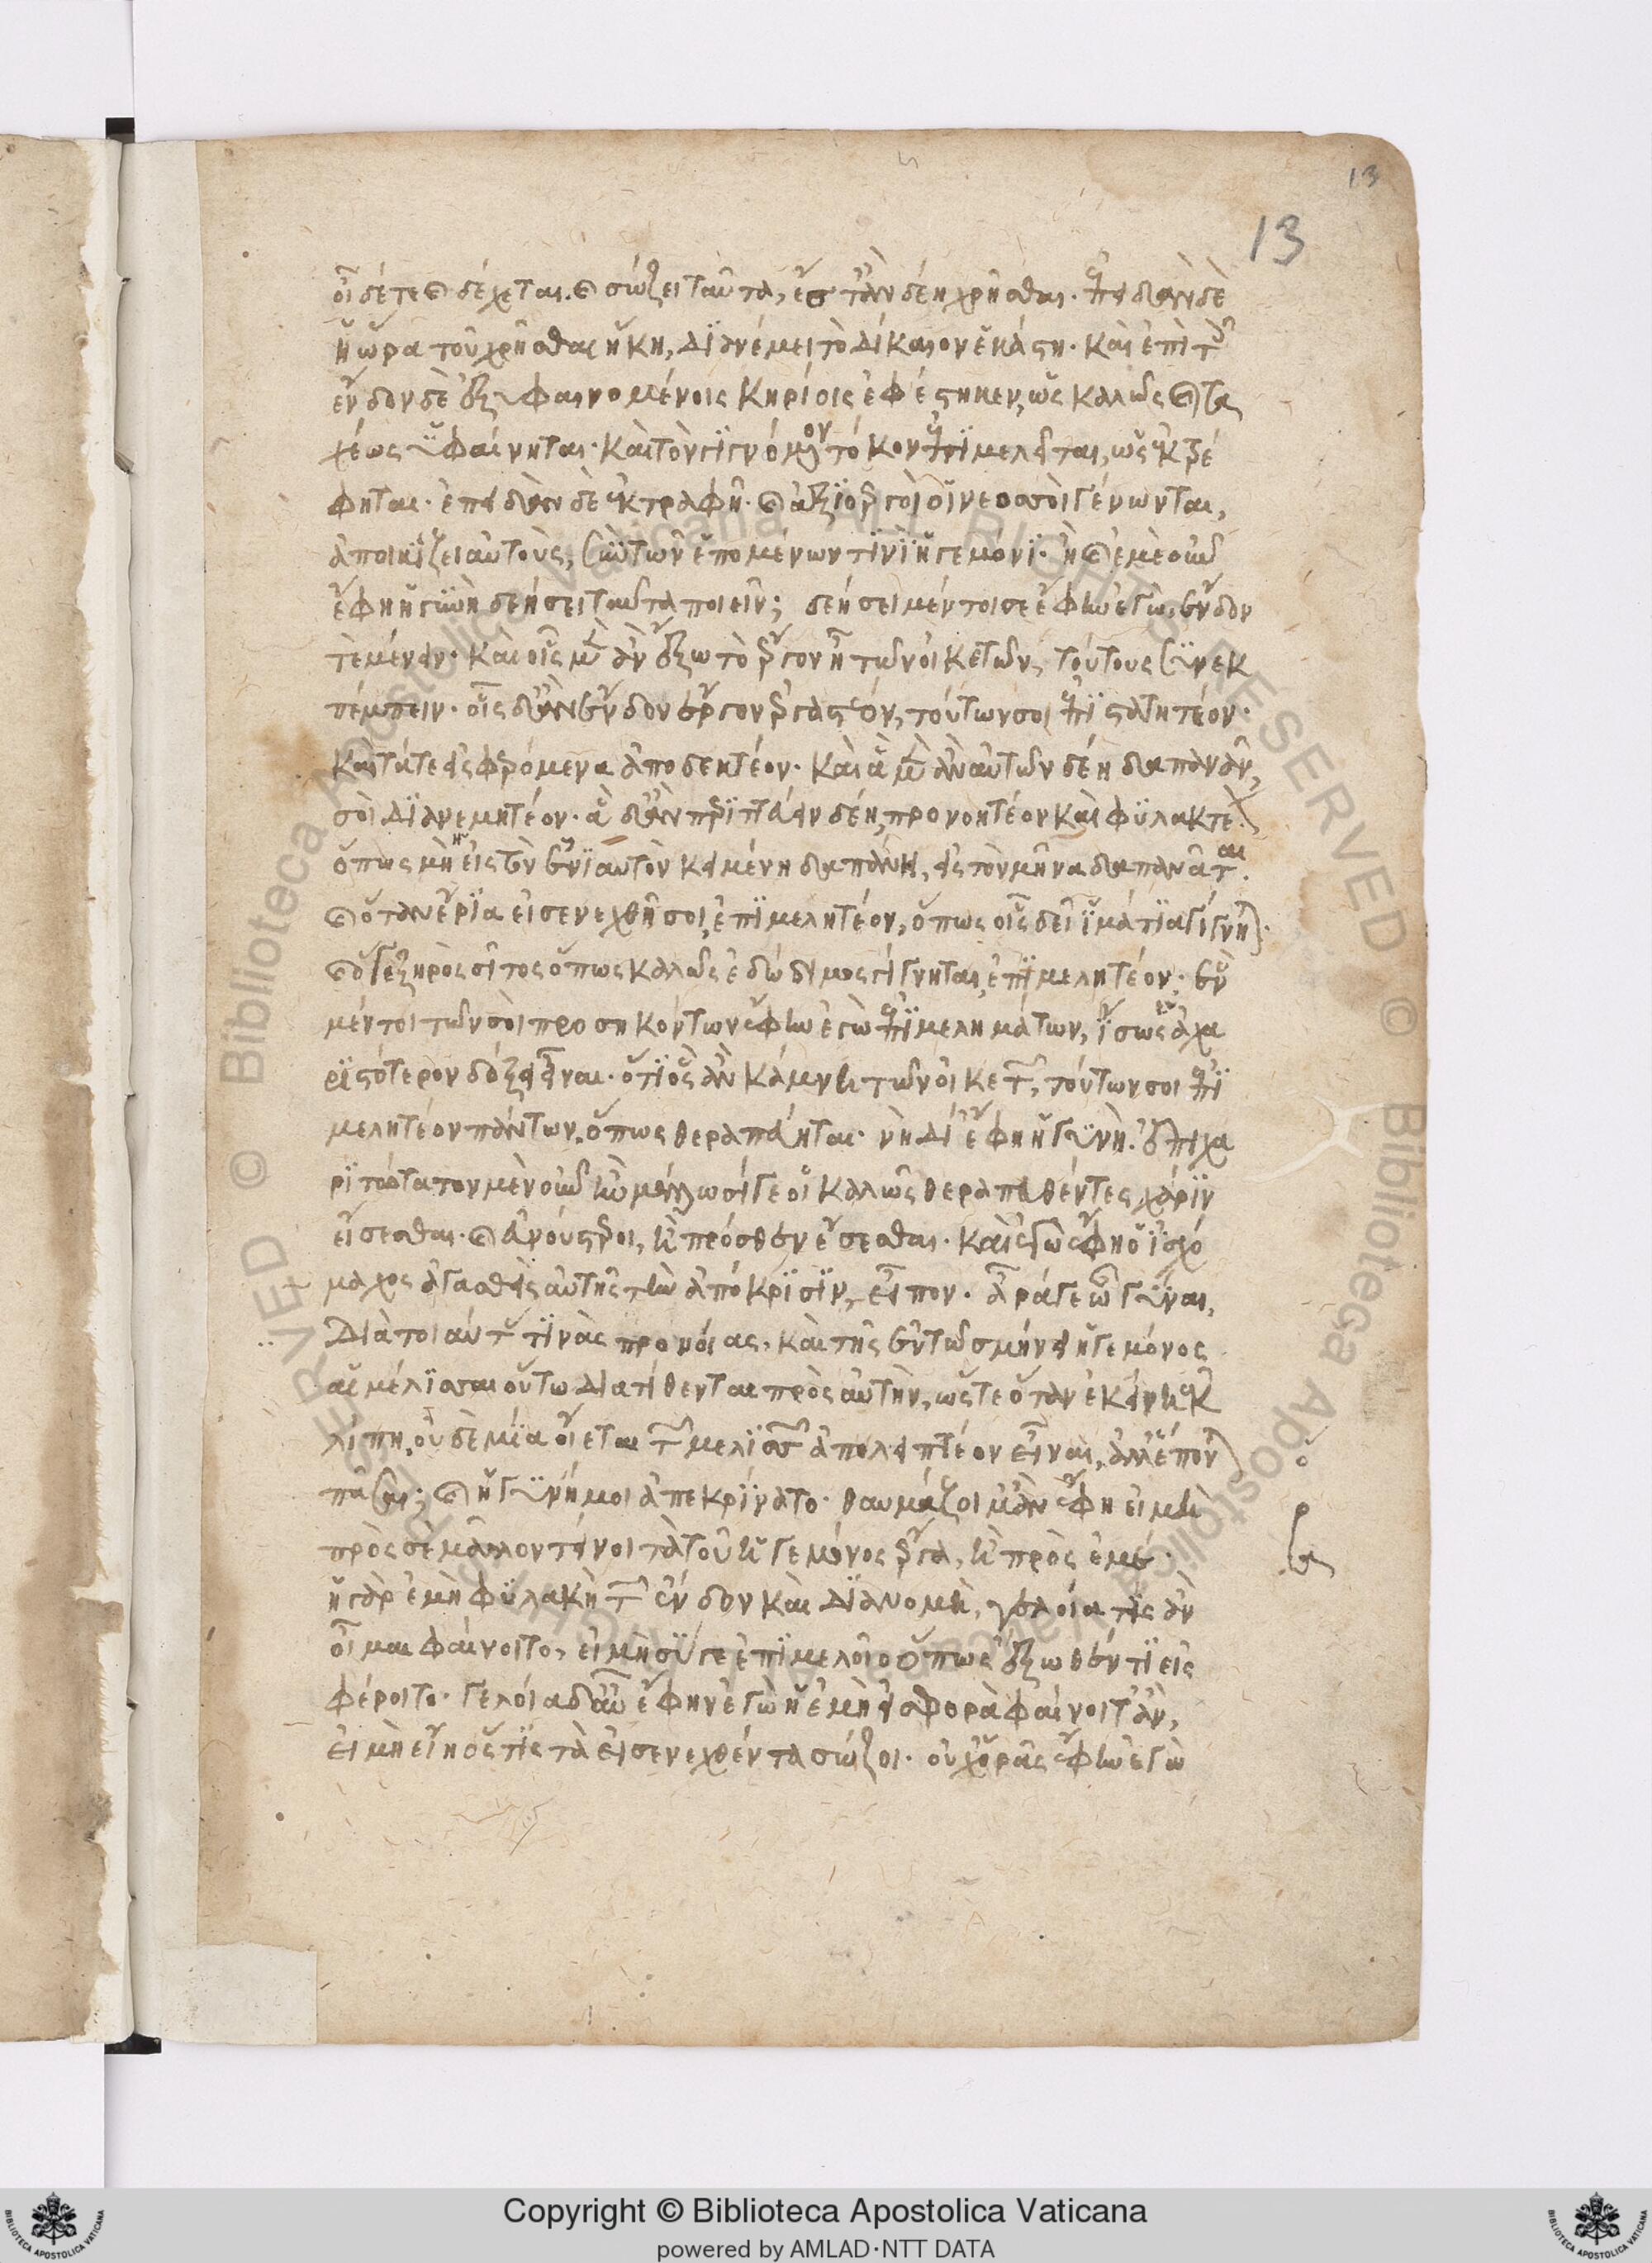 13
13
οἶδέ τε καὶ δέχεται. καὶ σώζει ταῦτα, ἔστ' ἂν δέη χρῆσθαι. ἐπειδὰν δὲ
ἡ ὥρα τοῦ χρῆσθαι ἥκη, διανέμει τὸ δίκαιον ἑκάστη. καὶ ἐπὶ τοῖς
ἔνδον δὲ ἐξυφαινομένοις κηρίοις ἐφέστηκεν, ὡς καλῶς καὶ τα
χέως ὑφαίνηται. καὶ τὸν γιγνόμενον τόκον ἐπιμελεῖται, ὡς ἐκτρέ
φηται. ἐπειδὰν δὲ ἐκτραφῆ. καὶ ἀξιοεργοὶ οἱ νεοσσοὶ γένωνται,
ἀποικίζει αὐτοὺς, σὺν τῶν ἑπομένων τινὶ ἡγεμόνι. ἢ καὶ ἐμὲ οὖν
ἔφη ἡ γυνὴ δεήσει ταῦτα ποιεῖν; δεήσει μέντοι σε ἔφην ἐγὼ, ἔνδον
τε μένειν. καὶ οἷς μὲν ἂν ἔξω τὸ ἔργον ἦ τῶν οἰκετῶν, τούτους συνεκ
πέμπειν. οἷς δ' ἂν ἔνδον ἔργον ἐργαστέον, τούτων σοι ἐπιστατητέον.
καὶ τά τε εἰσφερόμενα ἀποδεκτέον. καὶ ἃ μὲν ἂν αὐτῶν δέη δαπανᾶν,
σοὶ διανεμητέον. ἃ δ' ἂν περιττεύειν δέη, προνοητέον καὶ φυλακτέον
ὅπως μὴ ἡ εἰς τὸν ἐνιαυτὸν κειμένη δαπάνη, εἰς τὸν μῆνα δαπανᾶται.
καὶ ὅταν ἔρια εἰσενεχθῆ σοι, ἐπιμελητέον, ὅπως οἷς δεῖ ἱμάτια γίγνηται.
καὶ ὅ γε ξηρὸς σῖτος ὅπως καλῶς ἐδώδιμος γίγνηται, ἐπιμελητέον. ἓν
μέντοι τῶν σοὶ προσηκόντων ἔφην ἐγὼ ἐπιμελημάτων, ἴσως ἀχα
ριστότερον δόξει εἶναι. ὅτι ὃς ἂν κάμνη τῶν οἰκετῶν, τούτων σοι ἐπι
μελητέον πάντων, ὅπως θεραπεύηται. νὴ Δί' ἔφη ἡ γυνὴ. ἐπιχα
ριτώτατον μὲν οὖν ἢν μέλλωσί γε οἱ καλῶς θεραπευθέντες χάριν
εἴσεσθαι. καὶ εὐνούστεροι, ἢ πρόσθεν ἔσεσθαι. καὶ ἐγὼ ἔφη ὁ ἰσχό
μαχος ἀγασθεὶς αὐτῆς τὴν ἀπόκρισιν, εἶπον. ἆρά γε ὦ γύναι,
διὰ τοιαύτας τινὰς προνοίας, καὶ τῆς ἐν τῶ σμήνει ἡγεμόνος
αἱ μέλισσαι οὕτω διατίθενται πρὸς αὐτὴν, ὥστε ὅταν ἐκείνη ἐκ
λίπη, οὐδεμία οἴεται τῶν μελισσῶν ἀπολειπτέον εἶναι, ἀλλ' ἕπονται
πᾶσαι; καὶ ἡ γυνή μοι ἀπεκρίνατο. θαυμάζοιμ' ἂν ἔφη εἰ μὴ
πρὸς σὲ μᾶλλον τείνοι τὰ τοῦ ἡγεμόνος ἔργα, ἢ πρὸς ἐμέ.
ἡ γὰρ ἐμὴ φυλακὴ τῶν ἔνδον καὶ διανομὴ, γελοία τις ἂν
οἶμαι φαίνοιτο, εἰ μὴ σύ γε ἐπιμελοῖο ὅπως ἔξωθέν τι εἰς
φέροιτο. γελοία δ' αὖ ἔφην ἐγὼ ἡ ἐμὴ εἰσφορὰ φαίνοιτ' ἂν,
εἰ μὴ εἴη ὅς τις τὰ εἰσενεχθέντα σώζοι. οὐχ ὁρᾶς ἔφην ἐγὼ
Copyright © Biblioteca Apostolica Vaticana
powered by AMLAD·NTT DATA